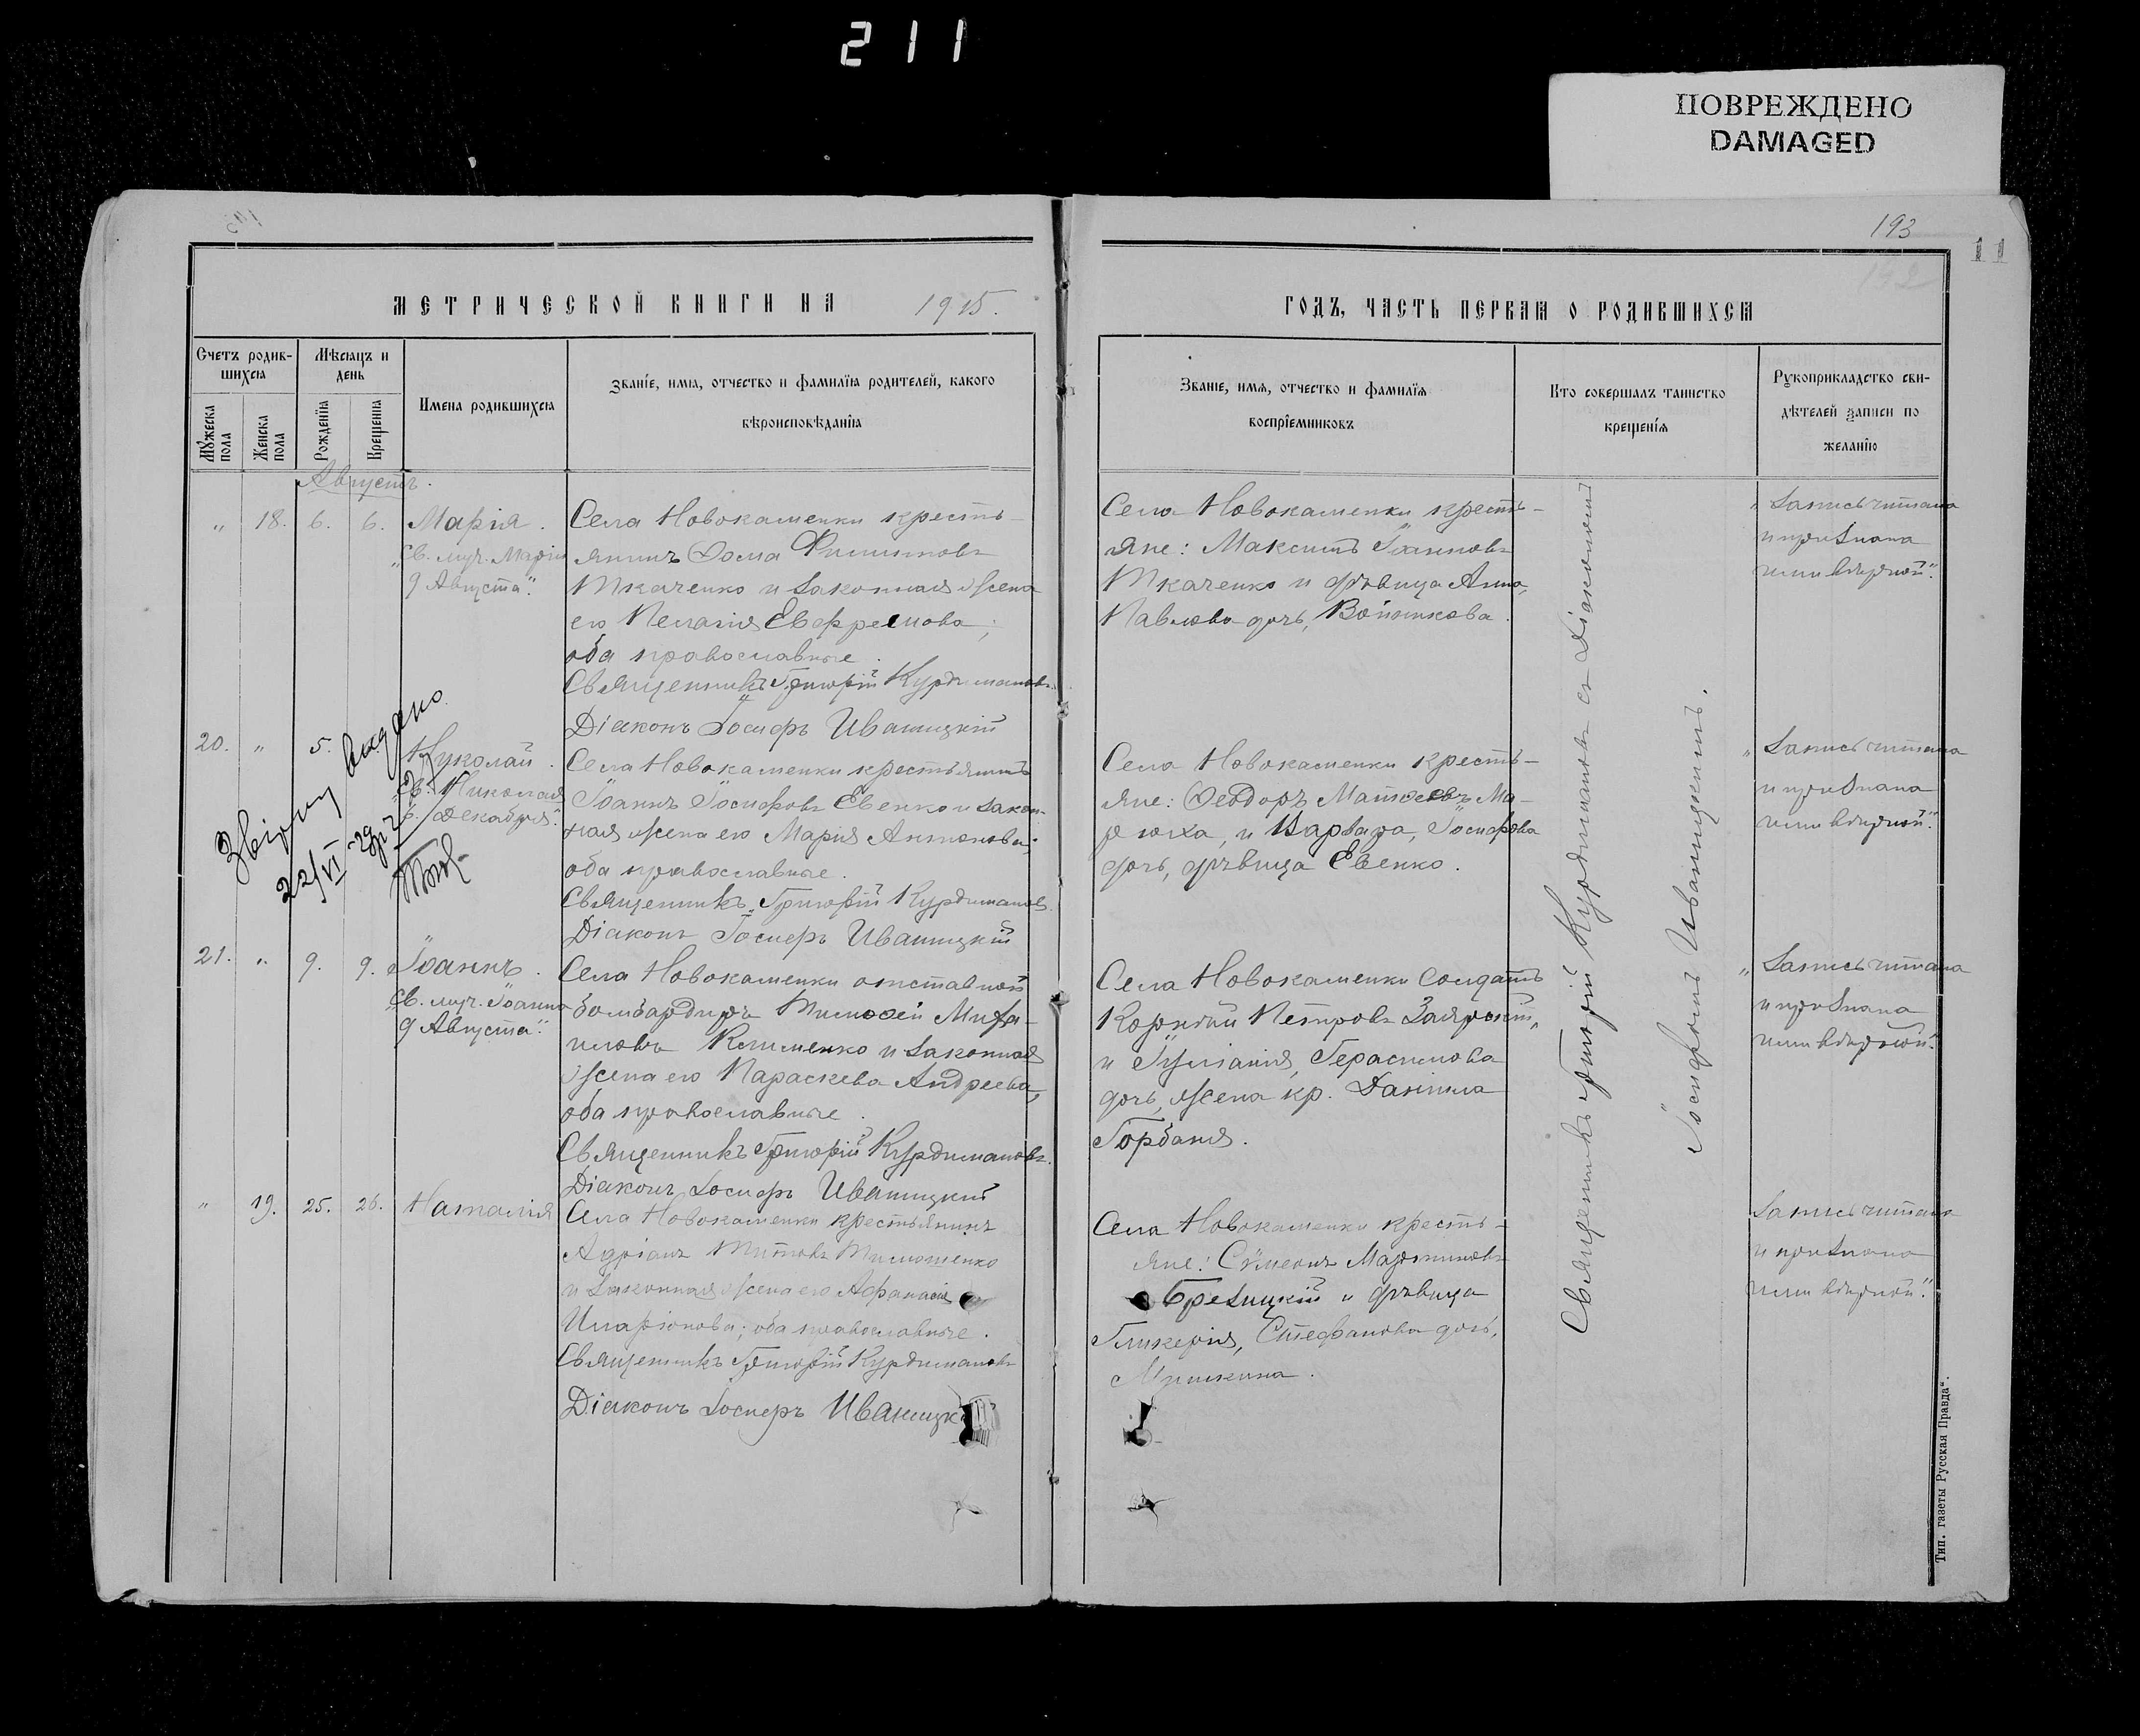 211
ПОВРЕЖДЕНО
DAMAGED
193
11
МЕТРИЧЕСКОЙ КНИГИ НА 1915.
ГОДЪ, ЧАСТЬ ПЕРВАЯ О РОДИВШИХСЯ
Счетъ родив-
шихся
Мужеска пола
Женска пола
Мѣсяцъ и
день
Рожденія
Крещенія
Имена родившихся
Званіе, имя, отчество и фамилія родителей, какого
вѣроисповѣданія
Званіе, имя, отчество и фамилія
воспріемниковъ
Кто совершалъ таинство
крещенія
Рукоприкладство сви-
дѣтелей записи по
желанію
Августъ.
" 18. 6. 6. Марія.
Св. муч. Марія
9 Августа."
Села Новокаменки кресть-
янинъ Ѳома Филипповъ
Ткаченко и законная жена
его Пелагія Евфремова;
оба православные.
Священникъ Григорій Курдимановъ.
Діаконъ Іосифъ Иваницкій
Села Новокаменки кресть-
яне: Максимъ Іоанновъ
Ткаченко и дѣвица Анна,
Павлова дочь, Войтикова.
"Запись читана
и признана
ими вѣрной".
20. " 5. Николай.
"Св. Николая
6. Декабря."
Звірку видано
22/VI -29р
Села Новокаменки крестьянинъ
Іоаннъ Іосифовъ Евенко и закон-
ная жена его Марія Антонова;
оба православные.
Священникъ Григорій Курдимановъ.
Діаконъ Іосифъ Иваницкій
Села Новокаменки кресть-
яне: Ѳеодоръ Матѳеевъ Ма-
рюха, и Варвара, Іосифова
дочь, дѣвица Евенко.
"Запись читана
и признана
ими вѣрной".
21. " 9. 9. Іоаннъ.
Св. муч. Іоанна
9 Августа."
Села Новокаменки отставной
бомбардиръ Тимоѳей Миха-
иловъ Клименко и законная
жена его Параскева Андреева,
оба православные.
Священникъ Григорій Курдимановъ.
Діаконъ Іосифъ Иваницкій
Села Новокаменки солдатъ
Корнѣй Петровъ Заярный,
и Іуліанія, Герасимова
дочь, жена кр. Даніила
Горбаня.
"Запись читана
и признана
ими вѣрной".
" 19. 25. 26. Наталія
Села Новокаменки крестьянинъ
Адріанъ Титовъ Тимошенко
и законная жена его Афанасія
Иларіонова; оба православные.
Священникъ Григорій Курдимановъ
Діаконъ Іосифъ Иваницк
Села Новокаменки кресть-
яне: Сѵмеонъ Мартиновъ
Брезицкій и дѣвица
Гликерія, Стефанова дочь,
Запись читана
и признана
ими вѣрной".
Священникъ Григорій Курдимановъ съ Діакономъ
Іосифомъ Иваницкимъ.
Тип. газеты Русская Правда".